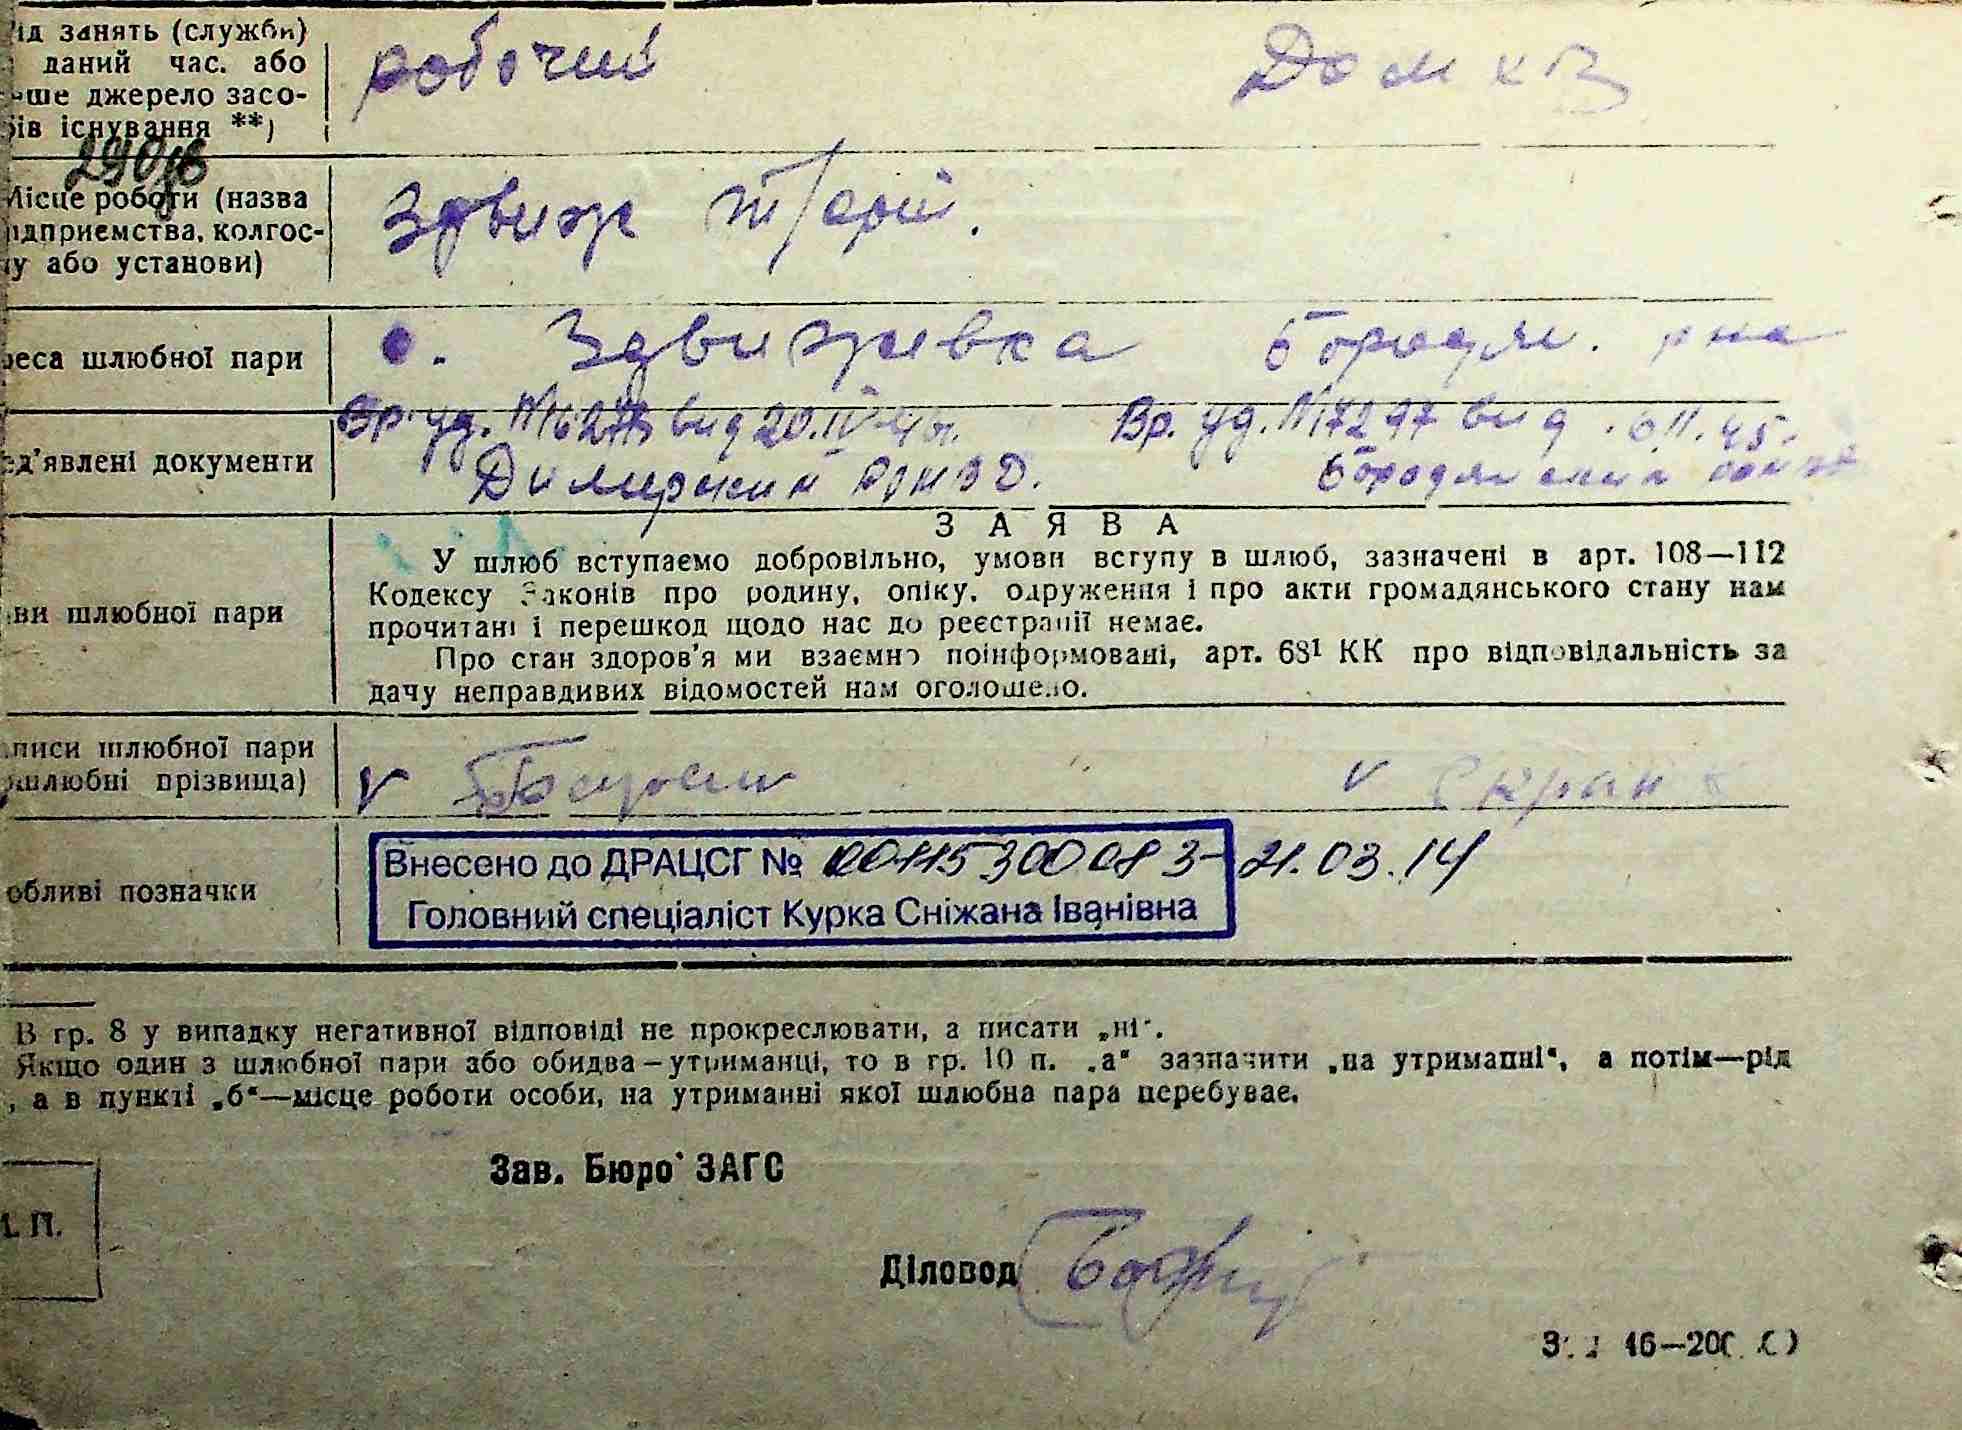 ід занять (служби)
даний час. або
нше джерело засо-
ів існування **)
робочий
290
Місце роботи (назва
ідприємства, колгос-
у або установи)
Здвиж т/арт.
реса шлюбної пари
с. Здвижівка Бородян. р на
ед'явлені документи
Вр. уд. № вид 20.IV Вр. уд. №17297 вид .45.
Димерский Бородянский
ЗАЯВА
У шлюб вступаємо добровільно, умови вступу в шлюб, зазначені в арт. 108—112
Кодексу Законів про родину, опіку, одруження і про акти громадянського стану нам
прочитані і перешкод щодо нас до реєстрації немає.
Про стан здоров'я ми взаємно поінформовані, арт. 68¹ КК про відповідальність за
дачу неправдивих відомостей нам оголошено.
ви шлюбної пари
писи шлюбної пари
шлюбні прізвища)
обливі позначки
Внесено до ДРАЦСГ № 21.03.14
Головний спеціаліст Курка Сніжана Іванівна
В гр. 8 у випадку негативної відповіді не прокреслювати, а писати „ні".
Якщо один з шлюбної пари або обидва—утриманці, то в гр. 10 п. „а" зазначити „на утриманні", а потім—рід
, а в пункті „б"—місце роботи особи, на утриманні якої шлюбна пара перебуває.
Зав. Бюро ЗАГС
П.
Діловод